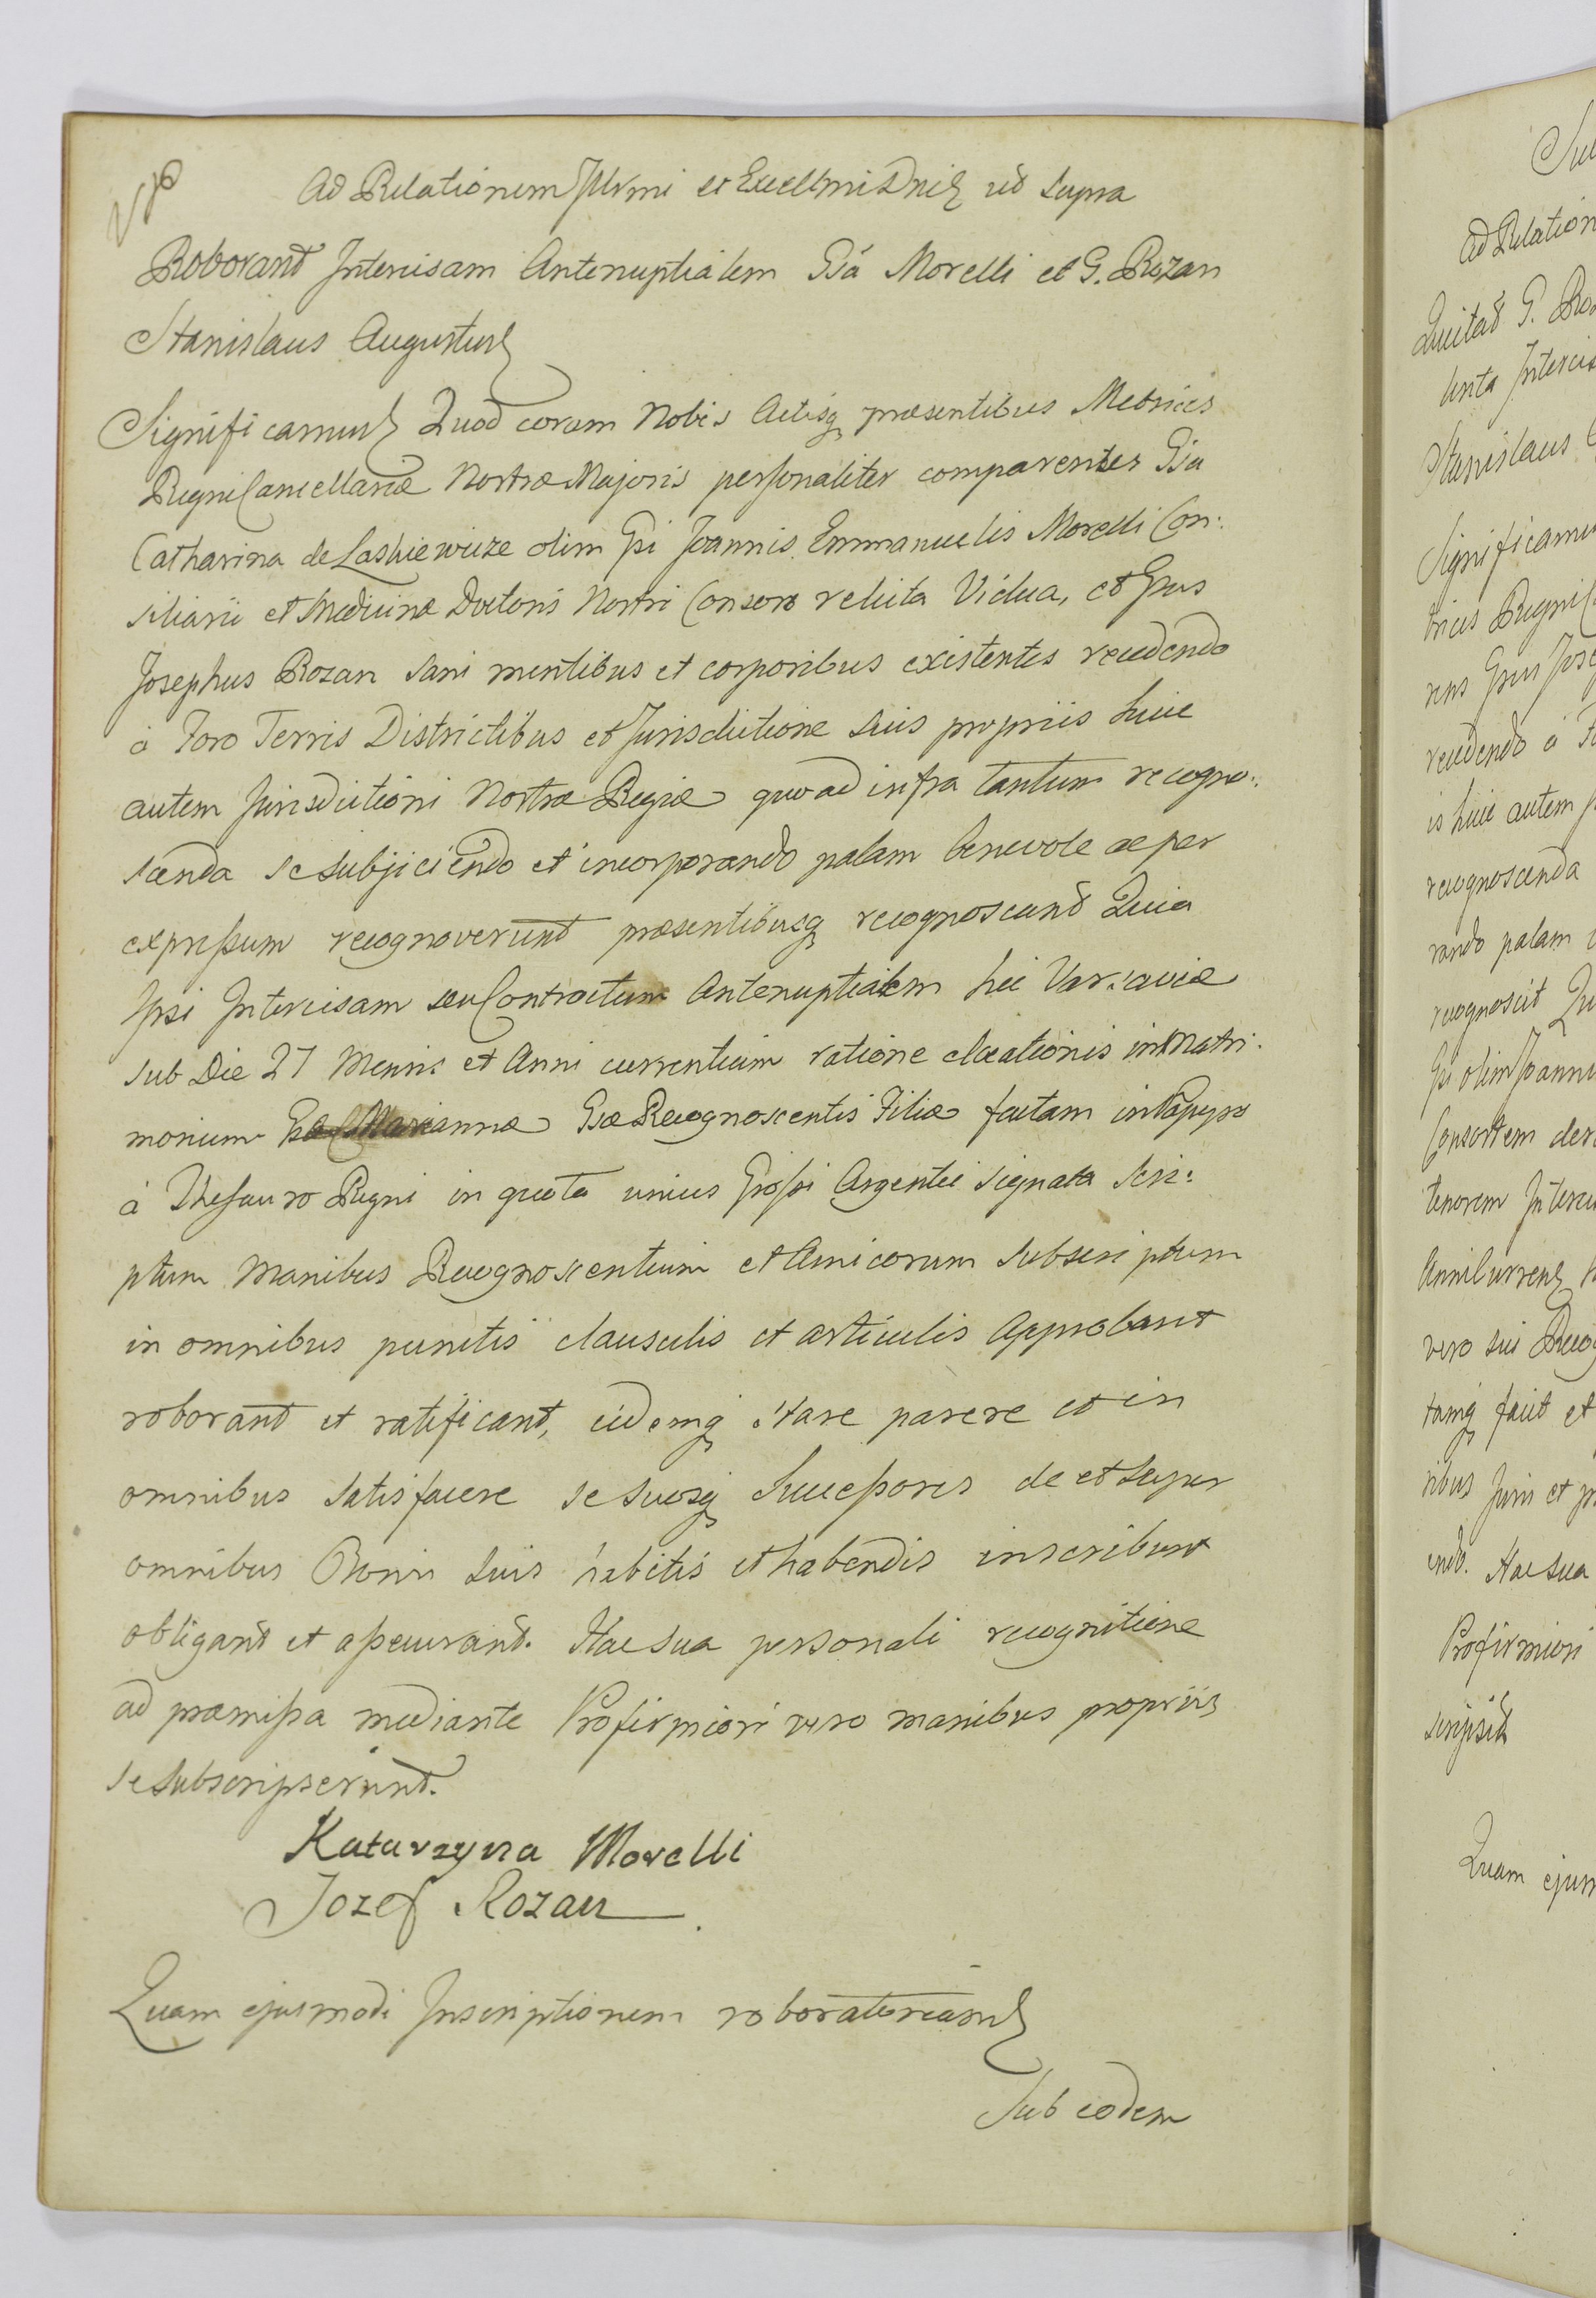 Ad Relationem Illrmi et Excellmi Dni ut supra
Roborant Intercisam Antenuptialem Gsa Morelli et G. Rozan
Stanislaus Augustus
Significamus Quod coram Nobis Actisq praesentibus Metrices
Regni Cancellariæ Nostræ Majoris personaliter comparentes Gsa
Catharina de Laskiewicze olim Gsi Joannis Emmanuelis Morelli Con:
siliarii et Medicinæ Doctoris Nostri Consors relicta Vidua, et Gsus
Josephus Rozan sani mentibus et corporibus existentes recedendo
à Foro Terris Districtibus et Jurisdictione suis propriis huic
autem Jurisdictioni Nostræ Regiæ quoad infra tantum recogno:
scenda se subjiciendo et incorporando palam benevole ac per
expressum recognoverunt præsentibusq recognoscunt Quia
Ipsi Intercisam seu Contractum Antenuptialem hic Varsaviæ
sub Die 27 Mensis et Anni currentium ratione elocationis in Matri:
monium Mariannæ Gsæ Recognoscentis Filiæ factam in Papyro
à Thesauro Regni in quota unius Grossi Argentei signata Scri:
ptum Manibus Recognoscentium et Amicorum subscriptum
in omnibus punctis clausulis et articulis Approbant
roborant et ratificant, eidemq stare parere et in
omnibus satisfacere se suosq Successores de et super
omnibus Bonis suis habitis et habendis inscribunt
obligant et assecurant. Hac sua personali recognitione
ad præmissa mediante Pro firmiori vero manibus propriis
se subscripserunt.
Katarzyna Morelli
Jozef Rozan
Quam ejusmodi Inscriptionem roboratoriam
Sub eodem
Ad Relation
Quitat G. Ro
Stanislaus
Significamu
tricis Regni
recedendo à Fo
is huic autem
recognoscenda
rando palam
recognoscit Qu
Gsi olim Joannis
Consortem
tenorem Interci
Anni Curren
vero sui Recog
tamq facit et
ribus Juris et
endo. Hac sua
Pro firmiori
scripsit
Quam ejusm